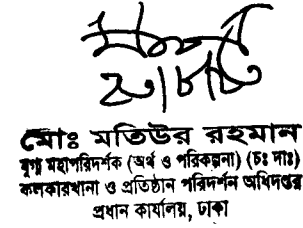 মোঃ মতিউর রহমান
যুগ্ম মহাপরিদর্শক (অর্থ ও পরিকল্পনা) (চঃ দাঃ)
কলকারখানা ও প্রতিষ্ঠান পরিদর্শন অধিদপ্তর
প্রধান কার্যালয়, ঢাকা